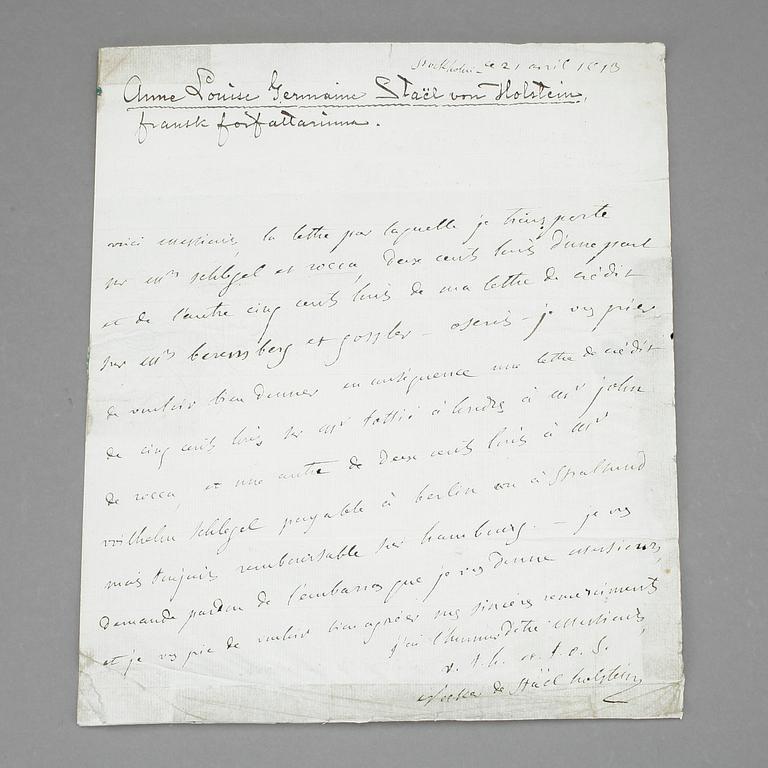 Stockholm ce 21 avril 1813
Anne Louise Germaine Staël von Holstein,
fransk författarinna.
voici messieurs, la lettre par laquelle je transporte
sur mrs schlegel et rocca, deux cents louis d'une part
et de l'autre cinq cents louis de ma lettre de crédit
sur mrs beremberg et gossler – oserais-je vs prier
de vouloir bien donner en conséquence une lettre de crédit
de cinq cents louis sur mr à londres à mr john
de rocca, et une autre de deux cents louis à mr
wilhelm schlegel payable à berlin ou à Stralsund
mais toujours remboursable sur hambourg. – je vs
demande pardon de l'embarras que je vs donne messieurs,
et je vs prie de vouloir bien agréer mes sincères remerciments
j'ai l'honneur d'être messieurs
v. t. h. et t. o. S.
Necker de Staël holstein